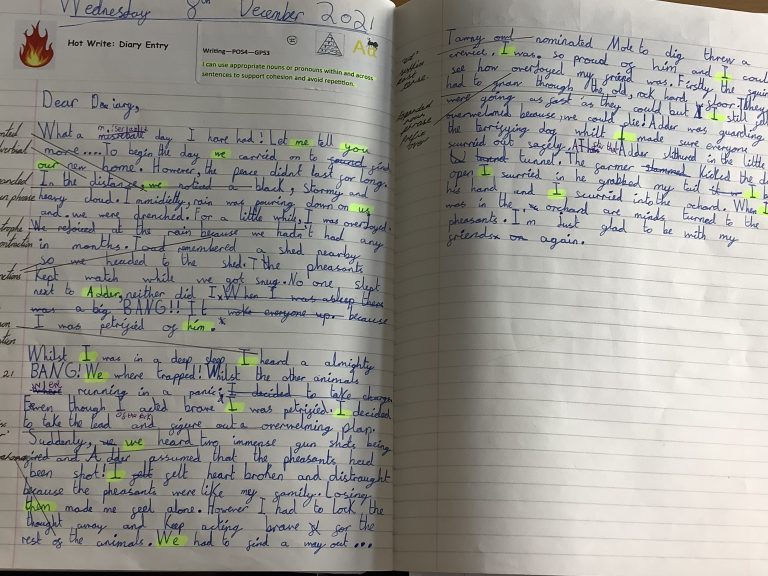 Wednesday 8th December 2021
Hot Write: Diary Entry
Writing—POS4—GPS3
I can use appropriate nouns or pronouns within and across
sentences to support cohesion and avoid repetition.
Dear Daiary,
What a miserable day I have had! Let me tell you
more.... To begin the day we carried on to find
our new home. However, the peace didnt last for long.
In the distance, we noticed a black, stormy and
heavy cloud. Immidietly, rain was pouring down on us
and we were drenched. For a little while, I was overjoyed.
We rejoiced at the rain because we hadn't had any
in months. Toad remembered a shed nearby
so we headed to the shed. The pheasants
kept watch while we got snug. No one slept
next to Adder, neither did I. When I was asleep there
was a big BANG!! It woke everyone up. because
I was petrified of him.*
Whilst I was in a deep sleep I heard a almighty
BANG! We where trapped! Whilst the other animals
were running in a panic, I decided to take charge
Even though I acted brave I was petrified. I decided
to take the lead and figure out a overwelming plan.
Suddenly, we heard two immense gun shots being
fired and Adder assumed that the pheasants had
been shot! I felt heart broken and distraught
because the pheasants were like my family. Losing
them made me feel alone. However I had to lock the
thought away and keep acting brave for the
rest of the animals. We had to find a way out...
Tawny and nominated Mole to dig threw a
crevice. I was so proud of him and I coul
see how overjoyed my friend was. Firstly the squir
had to gnaw through the old, rock hard floor. They
were going as fast as they could but I still felt
overwelmed because we could die! Adder was guarding
the terrifying dog whilst I made sure everyone
scurried out safely. Adder slithered in the little
tunnel. The farmer slammed kicked the d
open I scurried in he grabbed my tail I b
his hand and I scurried into the ochard. When I
was in the orchard are minds turned to the
pheasants. I'm Just glad to be with my
friends on again.